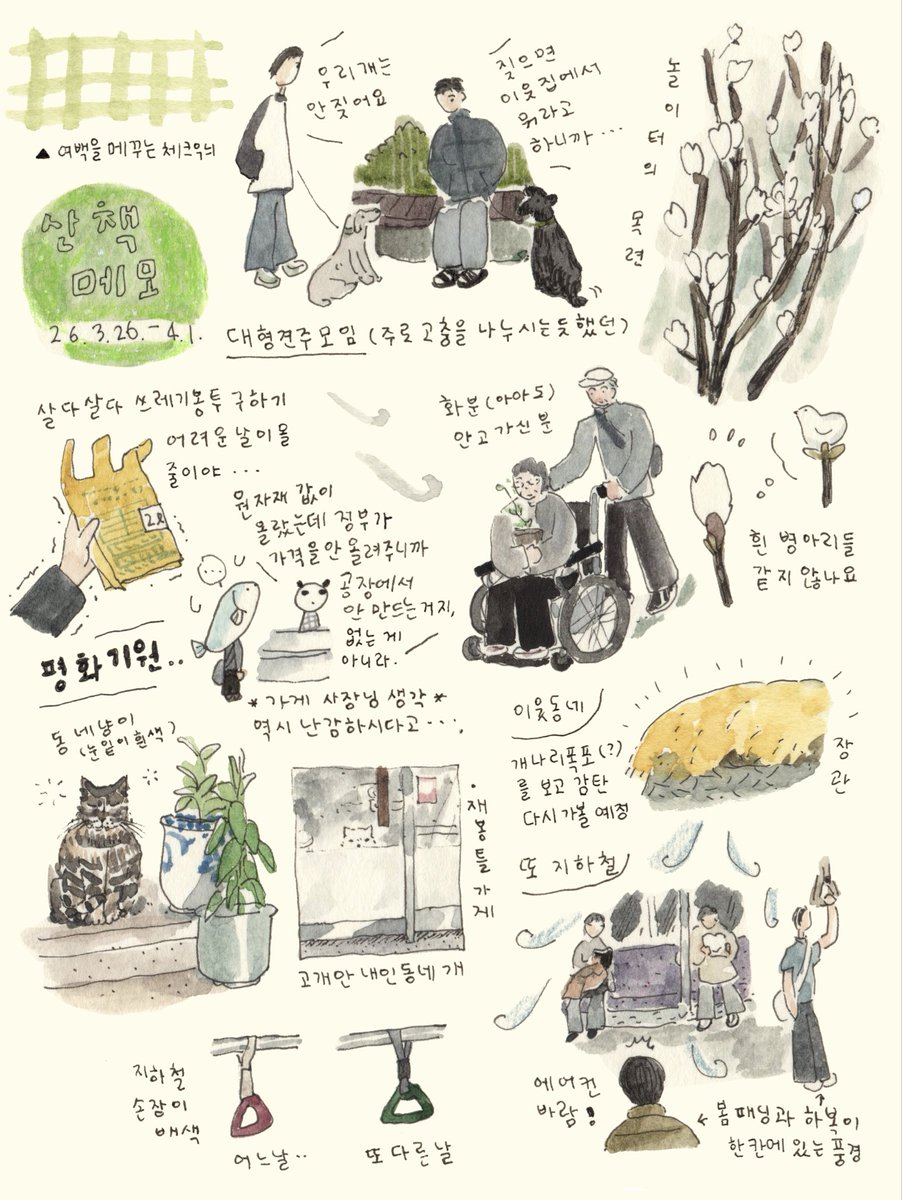 ▲ 여백을 메꾸는 체크무늬
산책
메모
26.3.26.-4.1.
우리개는
안짖어요
짖으면
이웃집에서
뭐라고
하니까…
대형견주모임 (주로 고충을 나누시는듯했던)
놀이터의 목련
살다살다 쓰레기봉투 구하기
어려운 날이 올
줄이야…
2L
원자재 값이
올랐는데 정부가
가격을 안 올려주니까
공장에서
안 만드는거지,
없는 게
아니라.
평화기원..
*가게 사장님 생각*
역시 난감하시다고…,
화분(아아도)
안고 가신 분
흰 병아리들
같지 않나요
동네냥이
(눈밑이 흰색)
·재봉틀가게
고개만 내민 동네 개
이웃동네
개나리폭포(?)
를 보고 감탄
다시 가볼 예정
장관
또 지하철
지하철
손잡이
배색
어느날..
또 다른날
에어컨
바람!
← 봄패딩과 하복이
한칸에 있는 풍경